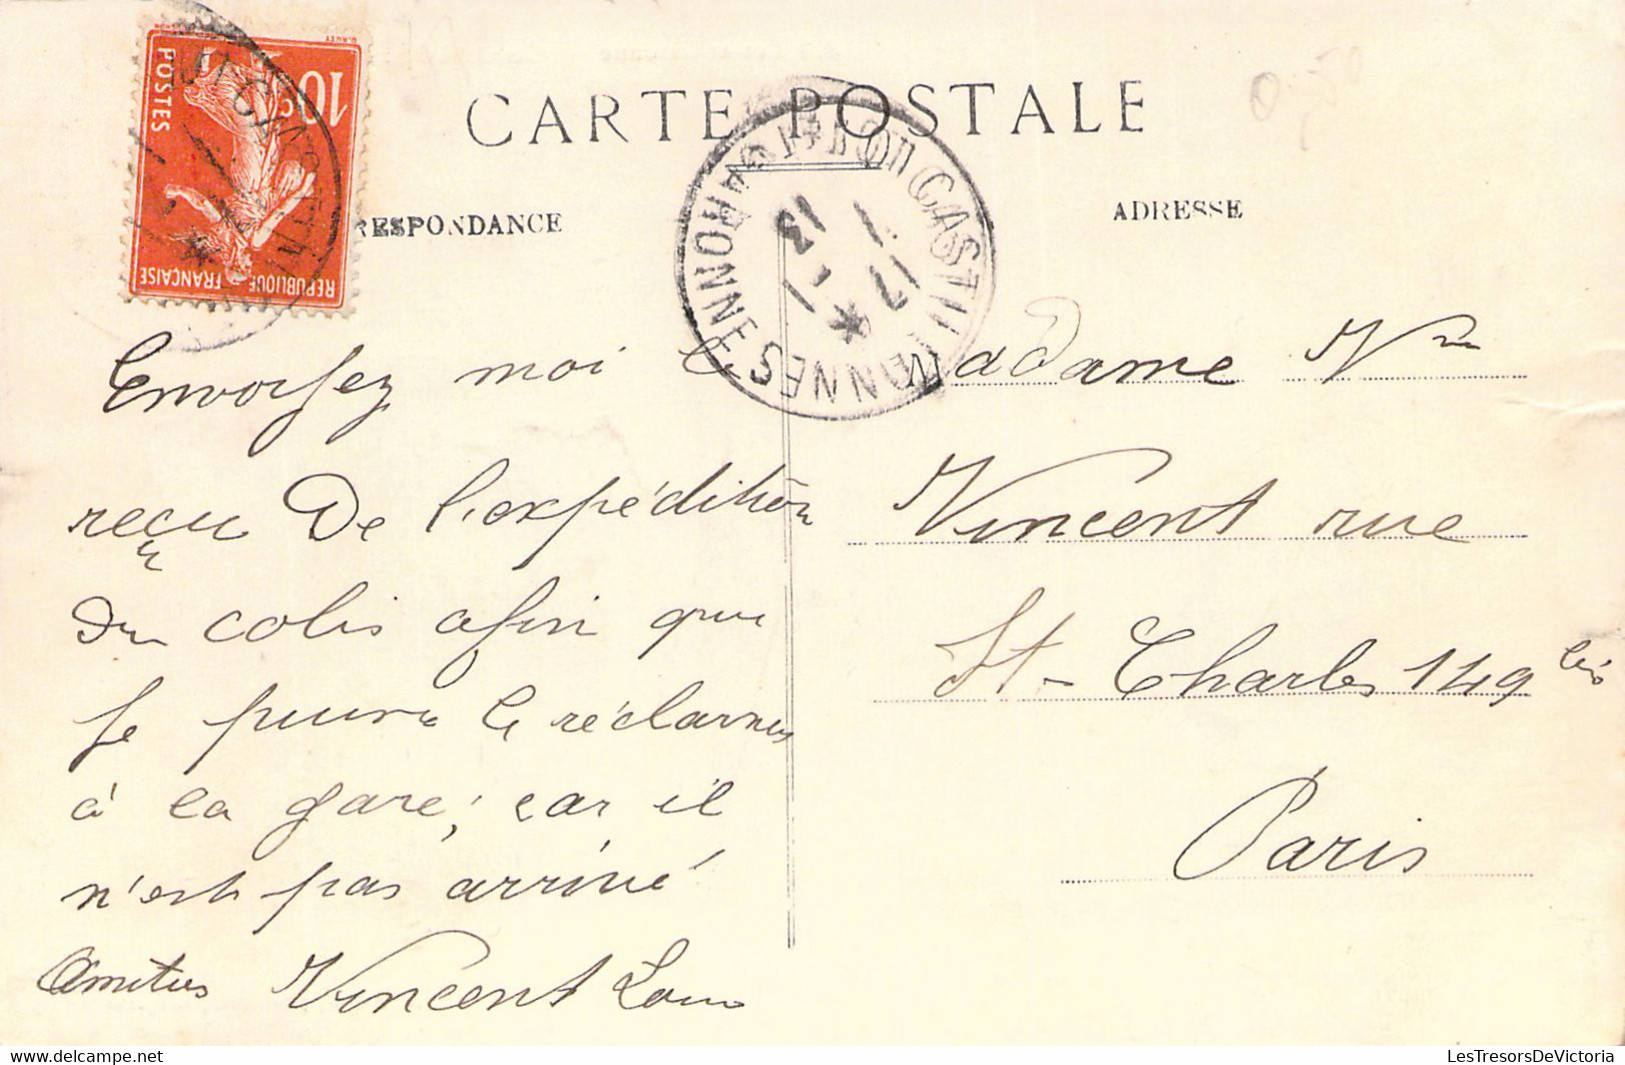 CARTE POSTALE
RESPONDANCE
ADRESSE
10c
POSTES
REPUBLIQUE FRANÇAISE
GARONNE
17 - 1
13
Envoyez moi le
reçu De l'expédition
du colis afin que
je puisse le réclamer
à la gare, car il
n'est pas arrivé
Amitiés Vincent Louis
Madame Vve
Vincent rue
St-Charles 149 bis
Paris
www.delcampe.net
LesTresorsDeVictoria